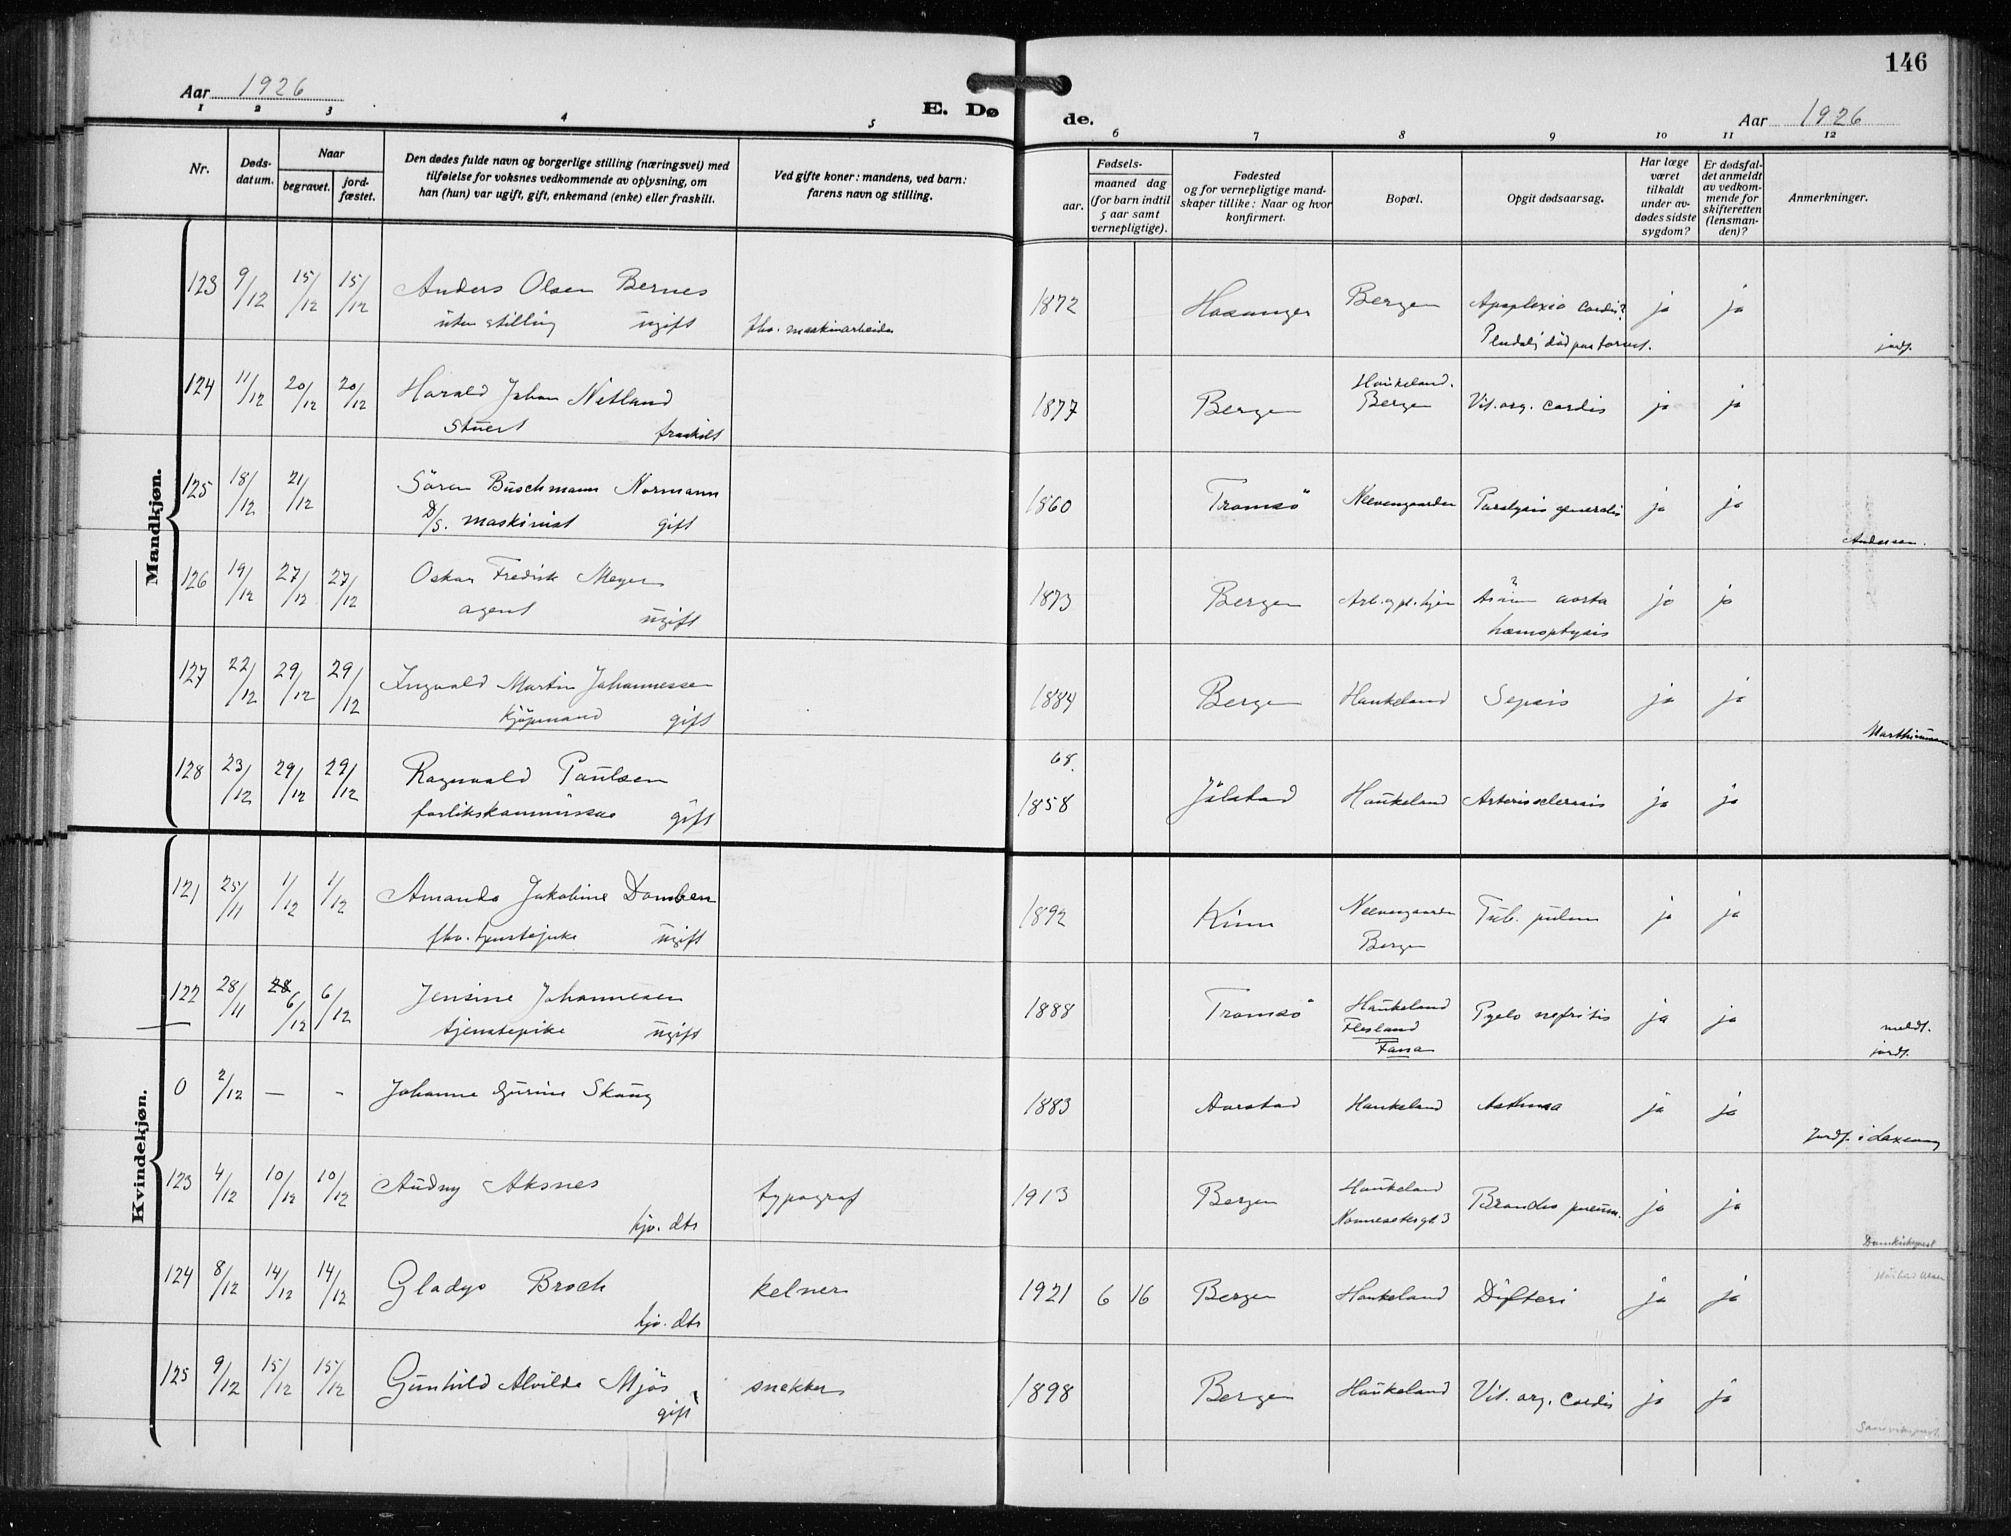 146
Aar 1926
E. Dø
de.
Aar 1926
1 2 3 4 5 6 7 8 9 10 11 12
Nr.
Døds-
datum.
Naar
begravet.
jord-
fæstet.
Den dødes fulde navn og borgerlige stilling (næringsvei) med
tilføielse for voksnes vedkommende av oplysning, om
han (hun) var ugift, gift, enkemand (enke) eller fraskilt.
Ved gifte koner: mandens, ved barn:
farens navn og stilling.
Fødsels-
aar.
maaned dag
(for barn indtil
5 aar samt
vernepligtige).
Fødested
og for vernepligtige mand-
skaper tillike: Naar og hvor
konfirmert.
Bopæl.
Opgit dødsaarsag.
Har læge
været
tilkaldt
under av-
dødes sidste
sygdom?
Er dødsfal-
det anmeldt
av vedkom-
mende for
skifteretten
(lensman-
den)?
Anmerkninger.
Mandkjøn.
123 9/12 15/12 15/12 Anders Olsen Bernes 1872 Hosanger Bergen Apoplexia cordis? ja ja
uten stilling ugift fhv. maskinarbeider
jordf.
124 11/12 20/12 20/12 Harald Johan Netland 1877 Bergen Haukeland. Bergen Vit. org. cordis ja ja
Stuert fraskilt
125 18/12 21/12 Sören Buschmann Normann 1860 Tromsö Neevengaarden Paralysis generalis ja ja
D/S. maskinist gift
Andersen.
126 19/12 27/12 27/12 Oskar Fredrik Meyer 1873 Bergen aorta ja ja
agent ugift hæmoptysis
127 22/12 29/12 29/12 Ingvald Martin Johannessen 1884 Bergen Haukeland Sepsis ja ja
kjöpmand gift
128 23/12 29/12 29/12 Ragnvald Paulsen 68. 1858 Jölstad Haukeland Arteriosclerosis ja ja
forlikskommissær gift
Kvindekjøn.
121 25/11 1/12 1/12 Amanda Jakobine Domben 1892 Kinn Neevengaarden Tub. pulm ja ja
fhv. tjenstepike ugift Bergen
122 28/11 28 6/12 6/12 Jensine Johannesen 1888 Tromsö Haukeland Pyelo nefritis ja ja
tjenstepike ugift Flesland
Fana
meldt.
jordf.
0 2/12 — - Johanne Gurine Skaug 1883 Aarstad Haukeland Asthma ja ja
Jordf. i
123 4/12 10/12 10/12 Audny Aksnes typograf 1913 Bergen Haukeland pneum. ja ja
hjv. dtr Nonneseterg. 3
124 8/12 14/12 14/12 Gladys Broch kelner 1921 6 16 Bergen Haukeland Difteri ja ja
hjv. dtr
125 9/12 15/12 15/12 Gunhild Alvilde Mjös snekker 1898 Bergen Haukeland Vit. org. cordis ja ja
gift